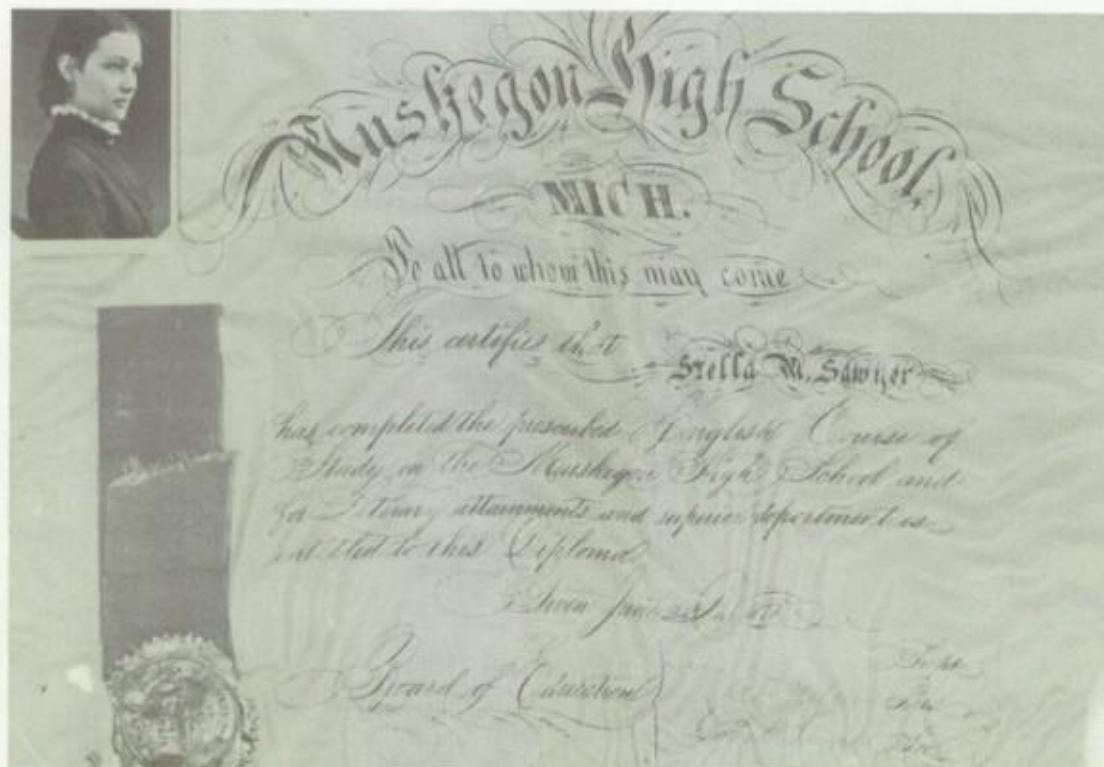 Muskegon High School,
MICH.
To all to whom this may come
This certifies that
Stella M. Sawyer
has completed the prescribed English Course of
Study in the Muskegon High School and
for Literary attainments and superior deportment is
entitled to this Diploma
Given
Board of Education